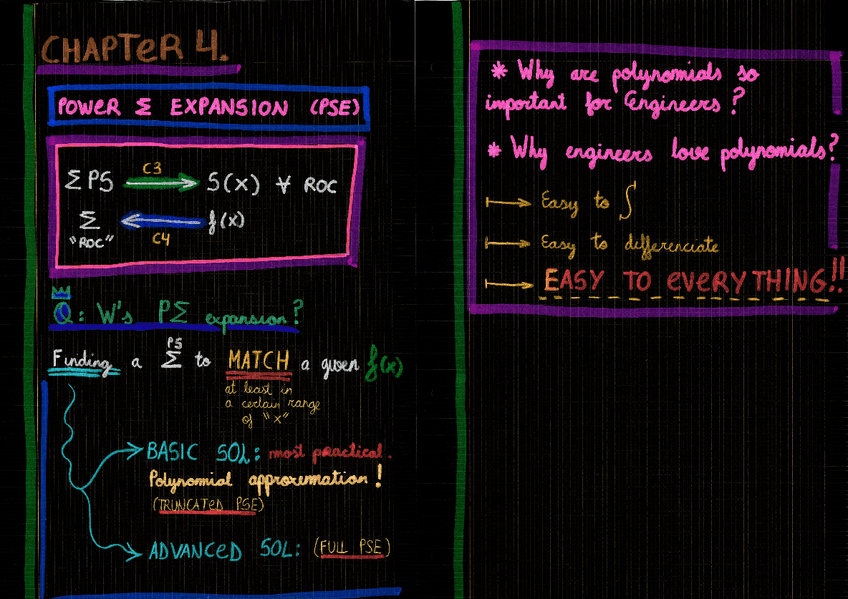 CHAPTER 4.
POWER Σ EXPANSION (PSE)
C3
Σ PS → S(x) ∀ ROC
Σ ← f(x)
"ROC" C4
Q: W's PΣ expansion?
PS
Finding a Σ to MATCH a given f(x)
at least in
a certain range
of "x"
BASIC SOL: most practical.
Polynomial approximation!
(TRUNCATED PSE)
ADVANCED SOL: (FULL PSE)
* Why are polynomials so
important for Engineers?
* Why engineers love polynomials?
→ Easy to ∫
→ Easy to differenciate
→ EASY TO EVERYTHING!!